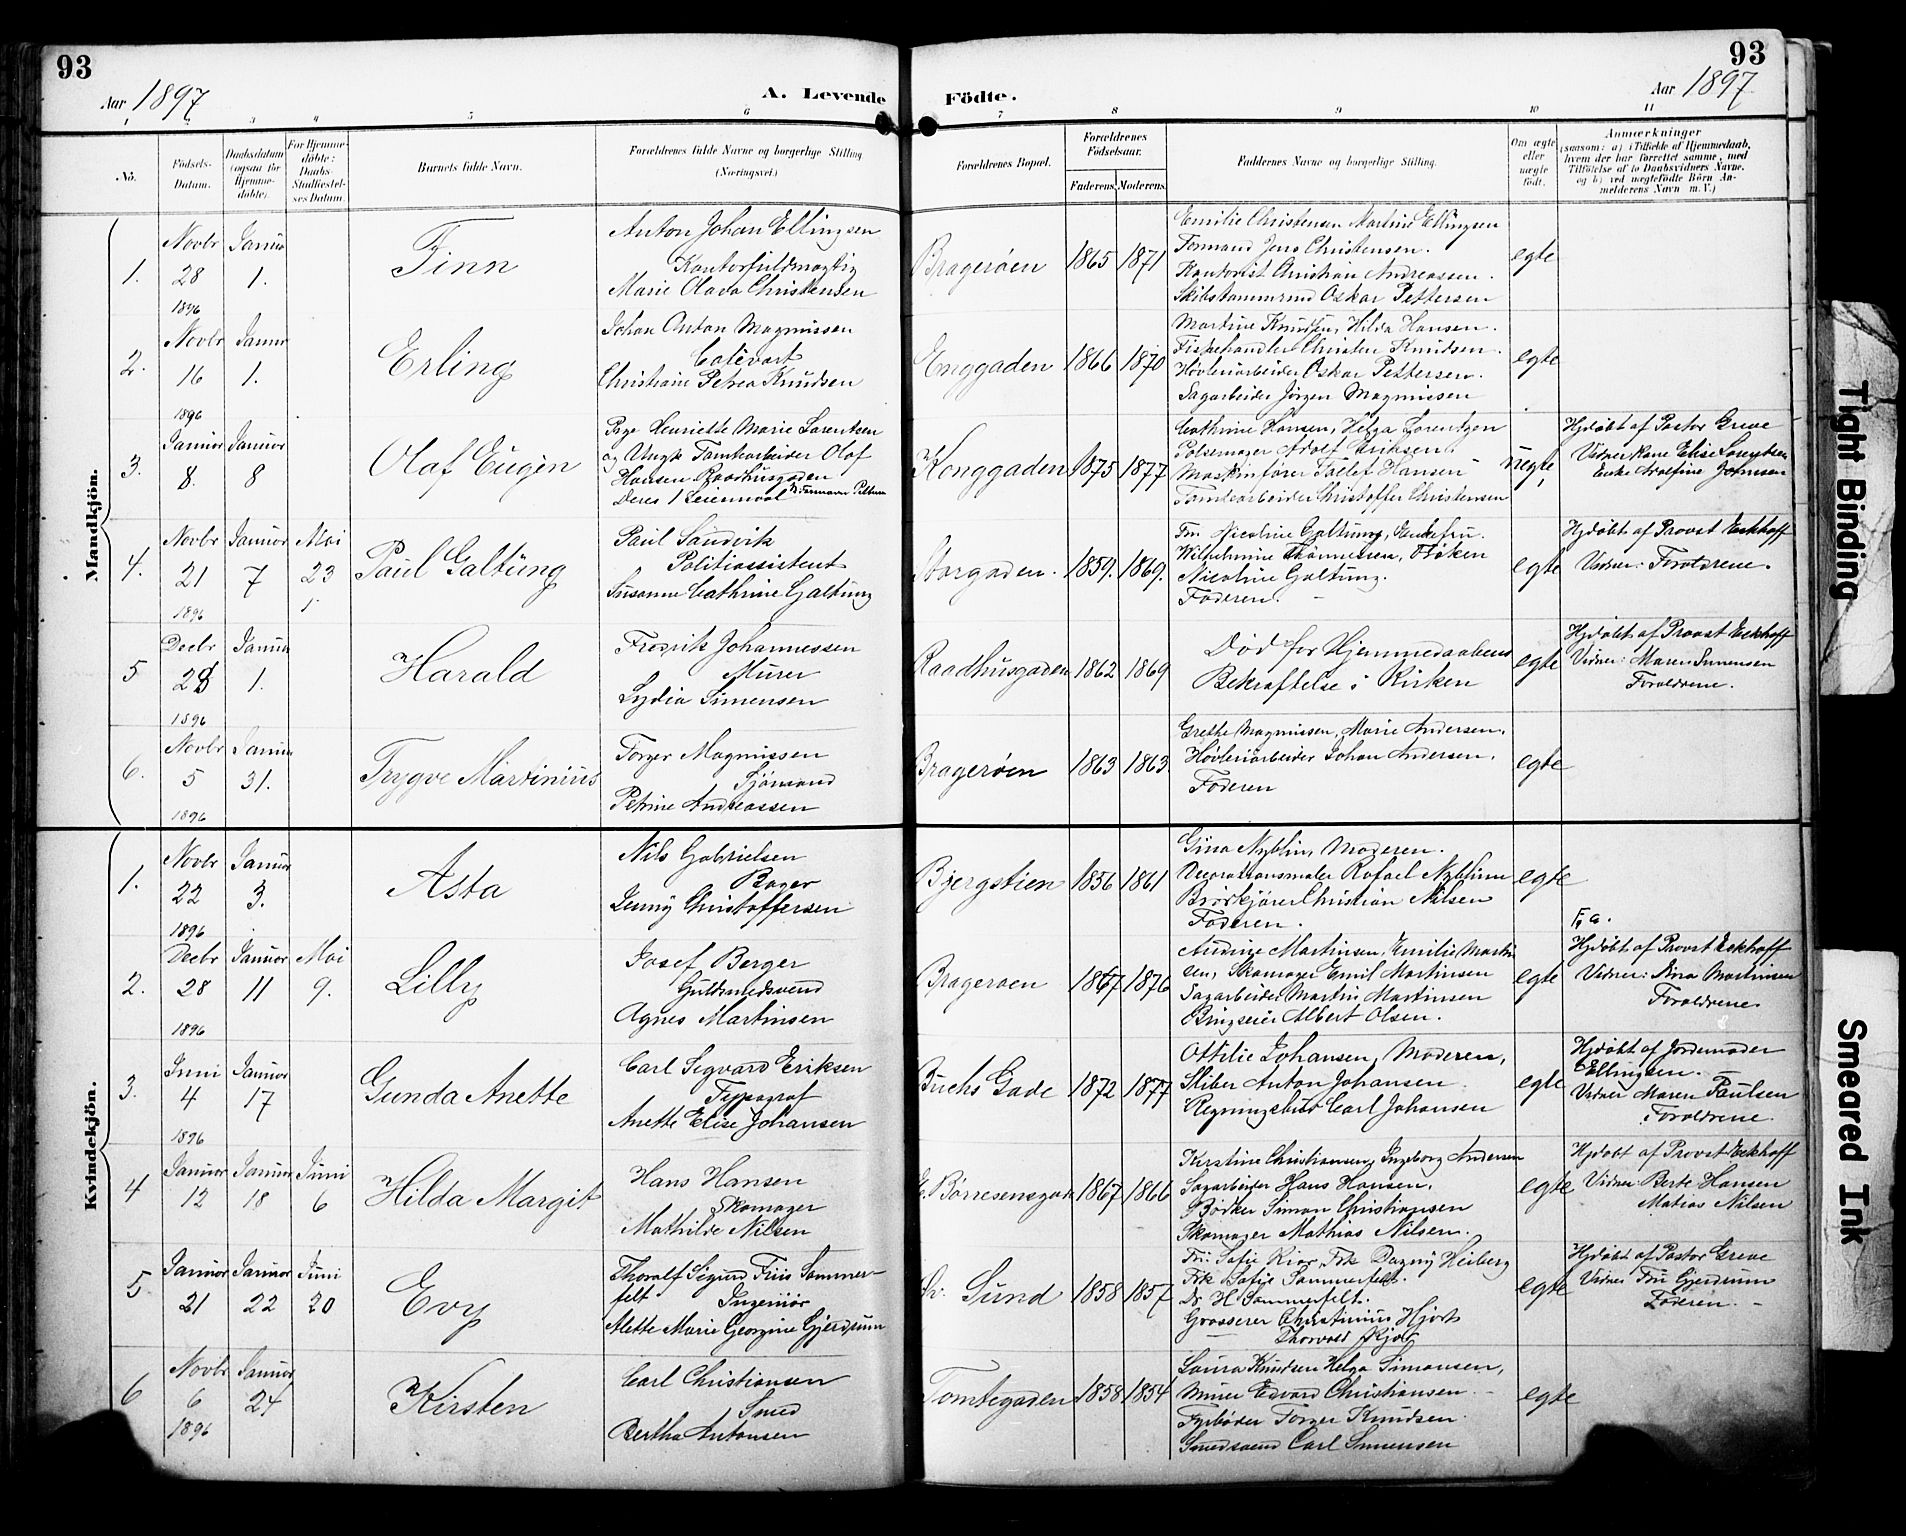 93
Aar 1897
A. Levende
Födte.
Aar 1897.
93
1
3
4
5
6
7
8
9
10
11
No.
Födsels-
Datum.
Daabsdatum
(ogsaa for
Hjemme-
döbte).
For Hjemme-
döbte:
Daabs-
Stadfæstel-
ses Datum.
Barnets fulde Navn.
Forældrenes fulde Navne og borgerlige Stilling
(Næringsvei.)
Forældrenes Bopæl.
Forældrenes
Födselsaar.
Faderens.
Moderens.
Faddernes Navne og borgerlige Stilling.
Om ægte
eller
uægte
födt.
Anmærkninger
(saasom: a) i Tilfælde af Hjemmedaab,
hvem der har forrettet samme, med
Tilföielse af to Daabsvidners Navne,
og b) ved uægtefödte Börn An-
melderens Navn m. V.)
Mandkjön.
1.
Novbr
28
1896
Januar
1.
Finn
Anton Johan Ellingsen
Kontorfuldmægtig
Marie Olava Christensen
Bragerøen
1865
1871
Emilie Christensen Martine Ellingsen
Formand Jens Christensen.
Kontorist Christian Andreassen.
Skibstømmrmd Oskar Pettersen
egte
2.
Novbr
16
1896
Januar
1.
Erling
Johan Anton Magnussen
Christiane Petrea Knudsen
Enggaden
1866
1870
Martine Knudsen, Hilda Hansen.
Fiskehandler Christen Knudsen.
Høvleriarbeider Oskar Pettersen.
Sagarbeider Jörgen Magnussen
egte
3.
Januar
8.
Januar
8
Olaf Eugen
Pige Henriette Marie Lorentsen
og Ungk Tomtearbeider Olaf
Hansen Raadhusgaden
Deres 1 Leiermaal
Konggaden
1875
1877
Cathrine Hansen, Helga Lorentzen
Pølsemager Adolf Eriksen,
Maskinfører Hansen
Tomtearbeider Christoffer Christensen
uegte,
Hjdøbt af Pastor Greve
Vidner Kone Elise Lorentsen
Enke Adolfine Johnsen
4.
Novbr
21
1896
Januar
7
Mai
23
Paul Galtung
Paul Sandvik
Politiassistent
Susanne Cathrine Galtung
Storgaden.
1859.
1869.
Fru Nicoline Galtung, Enkefru.
Wilhelmine Thommesen, Frøken
Nicoline Galtung.
Faderen.
egte
Hjdøbt af Provst Eckhoff
Vidner: Forældrene.
5
Decbr
28
1896
Januar
1.
Harald
Fredrik Johannessen
Murer
Lydia Simensen
Raadhusgaden
1862
1869
Død før Hjemmedaabens
Bekræftelse i Kirken
egte
Hjdøbt af Provst Eckhoff
Vidner: Maren Simensen
Forældrene.
6.
Novbr
5
1896
Januar
31.
Trygve Martinius
Torger Magnussen
Sjömand
Petrine Andreassen
Bragerøen
1863
1863.
Grethe Magnussen, Marie Andersen,
Høvleriarbeider Johan Andersen,
Faderen
egte
Kvindekjön.
1.
Novbr
22
1896
Januar
3.
Asta
Nils Gabrielsen
Bager
Jenny Christoffersen
Bjergstien
1856
1861
Gina Nyblin, Moderen.
Decorationsmaler Rafael Nyblinn
Brødkjører Christian Nilsen
Faderen.
egte
2.
Decbr
28
1896
Januar
11
Mai
9.
Lilly
Josef Berger
Guldsmedsvend
Agnes Martinsen
Bragerøen
1867
1876
Andrine Martinsen, Emilie Martin
sen, Skomager Emil Martinsen
Sagarbeider Martin Martinsen
Albert Olsen.
egte
Hjdøbt af Provst Eckhoff
Vidner: Lina Martinsen
Forældrene.
3.
Juni
4
1896
Januar
17
Gunda Anette
Carl Sigvard Eriksen
Typograf
Anette Elise Johansen
Buchs Gade
1872
1877
Ottilie Johansen, Moderen,
Sliber Anton Johansen
Regningsbud Carl Johansen
egte
Hjdøbt af Jordemoder
Ellingsen.
Vidner Maren Paulsen
Forældrene.
4
Januar
12
Januar
18
Juni
6
Hilda Margit
Hans Hansen
Skomager
Mathilde Nilsen
Børresensgade
1867
1866
Kirstine Christiansen, Ingeborg Andersen
Sagarbeider Hans Hansen.
Bødker Simon Christiansen
Skomager Mathias Nilsen.
egte
Hjdøbt af Provst Eckhoff
Vidner Berte Hansen
Matias Nilsen
5
Januar
21
Januar
22
Juni
20
Evy
Thoralf Sigurd Friis Sommer-
felt
Ingeniør
Alette Marie Georgine Gjerdrum
Sv. Sund
1858
1857
Fru Sofie Kiær, Frk Dagny Heiberg
Frk Sofie Sommerfelt.
Dr H Sommerfelt.
Grosserer Christinius Hjorth
Thorvald Kjær
egte
Hjdøbt af Pastor Greve
Vidner Fru Gjerdrum
Faderen.
6
Novbr
6
1896
Januar
24
Kirsten
Carl Christiansen
Smed
Bertha Antonsen
Tomtegaden
1858
1854
Laura Knudsen Helga Simonsen,
Murer Edvard Christiansen.
Fyrbøder Torger Knudsen.
Smedsvend Carl Simensen
egte
Tight Binding
Smeared Ink